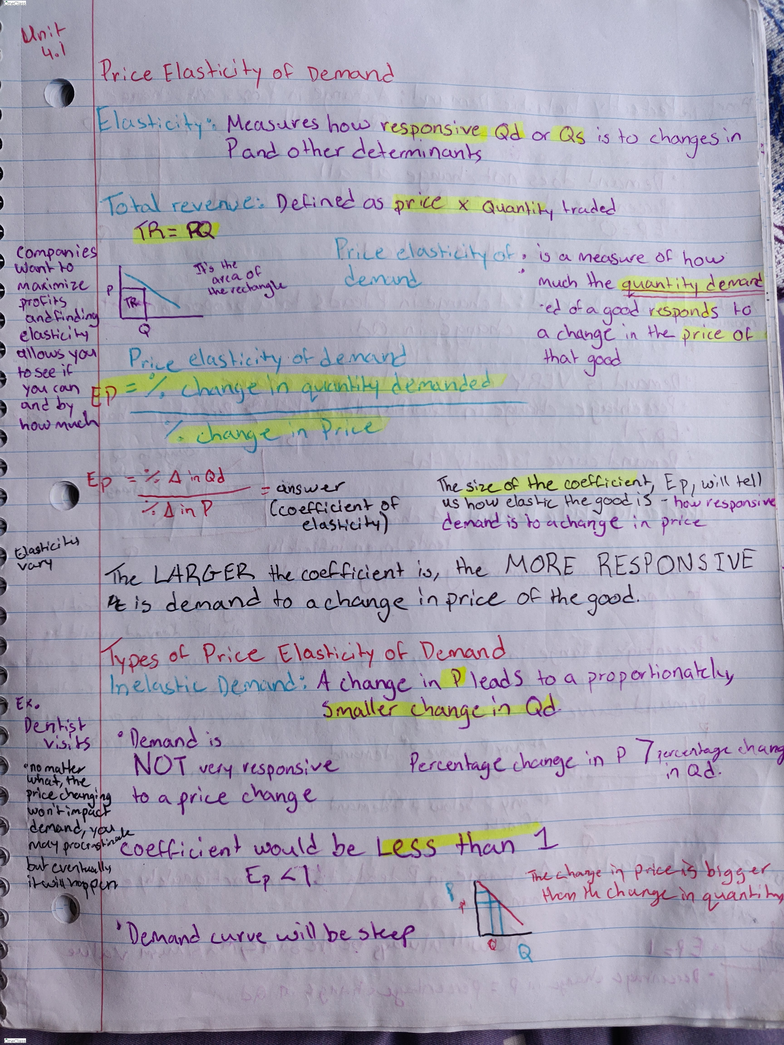 Unit
4.1
Price Elasticity of Demand
Elasticity: Measures how responsive Qd or Qs is to changes in
P and other determinants
Total revenue: Defined as price x Quantity traded
TR = PQ
Companies
want to
maximize
profits
and finding
elasticity
allows you
to see if
you can
and by
how much
P
TR
Q
It's the
area of
the rectangle
Price elasticity of
demand
: is a measure of how
much the quantity demand
-ed of a good responds to
a change in the price of
that good
Price elasticity of demand
EP = % change in quantity demanded
% change in Price
Ep = % Δ in Qd
% Δ in P
= answer
(coefficient of
elasticity)
The size of the coefficient, Ep, will tell
us how elastic the good is - how responsive
demand is to a change in price
Elasticity
vary
The LARGER the coefficient is, the MORE RESPONSIVE
is demand to a change in price of the good.
Types of Price Elasticity of Demand
Inelastic Demand: A change in P leads to a proportionately
smaller change in Qd
Ex.
Dentist
visits
•no matter
what, the
price changing
won't impact
demand, you
may procrastinate
but eventually
it will happen
• Demand is
NOT very responsive
to a price change
Percentage change in P > percentage chang
in Qd.
Coefficient would be Less than 1
Ep < 1
The change in price is bigger
than th change in quantity
P
P
Q
Q
• Demand curve will be steep